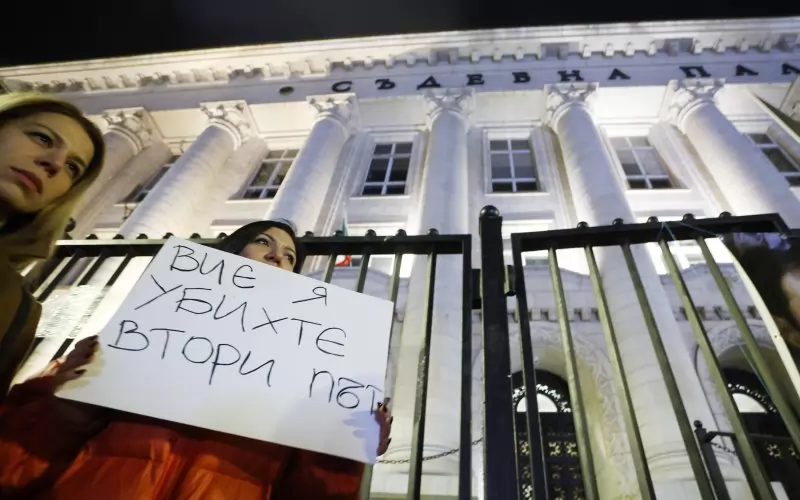 СЪДЕБНА ПАЛА
ВИЕ Я
УБИХТЕ
ВТОРИ ПЪТ